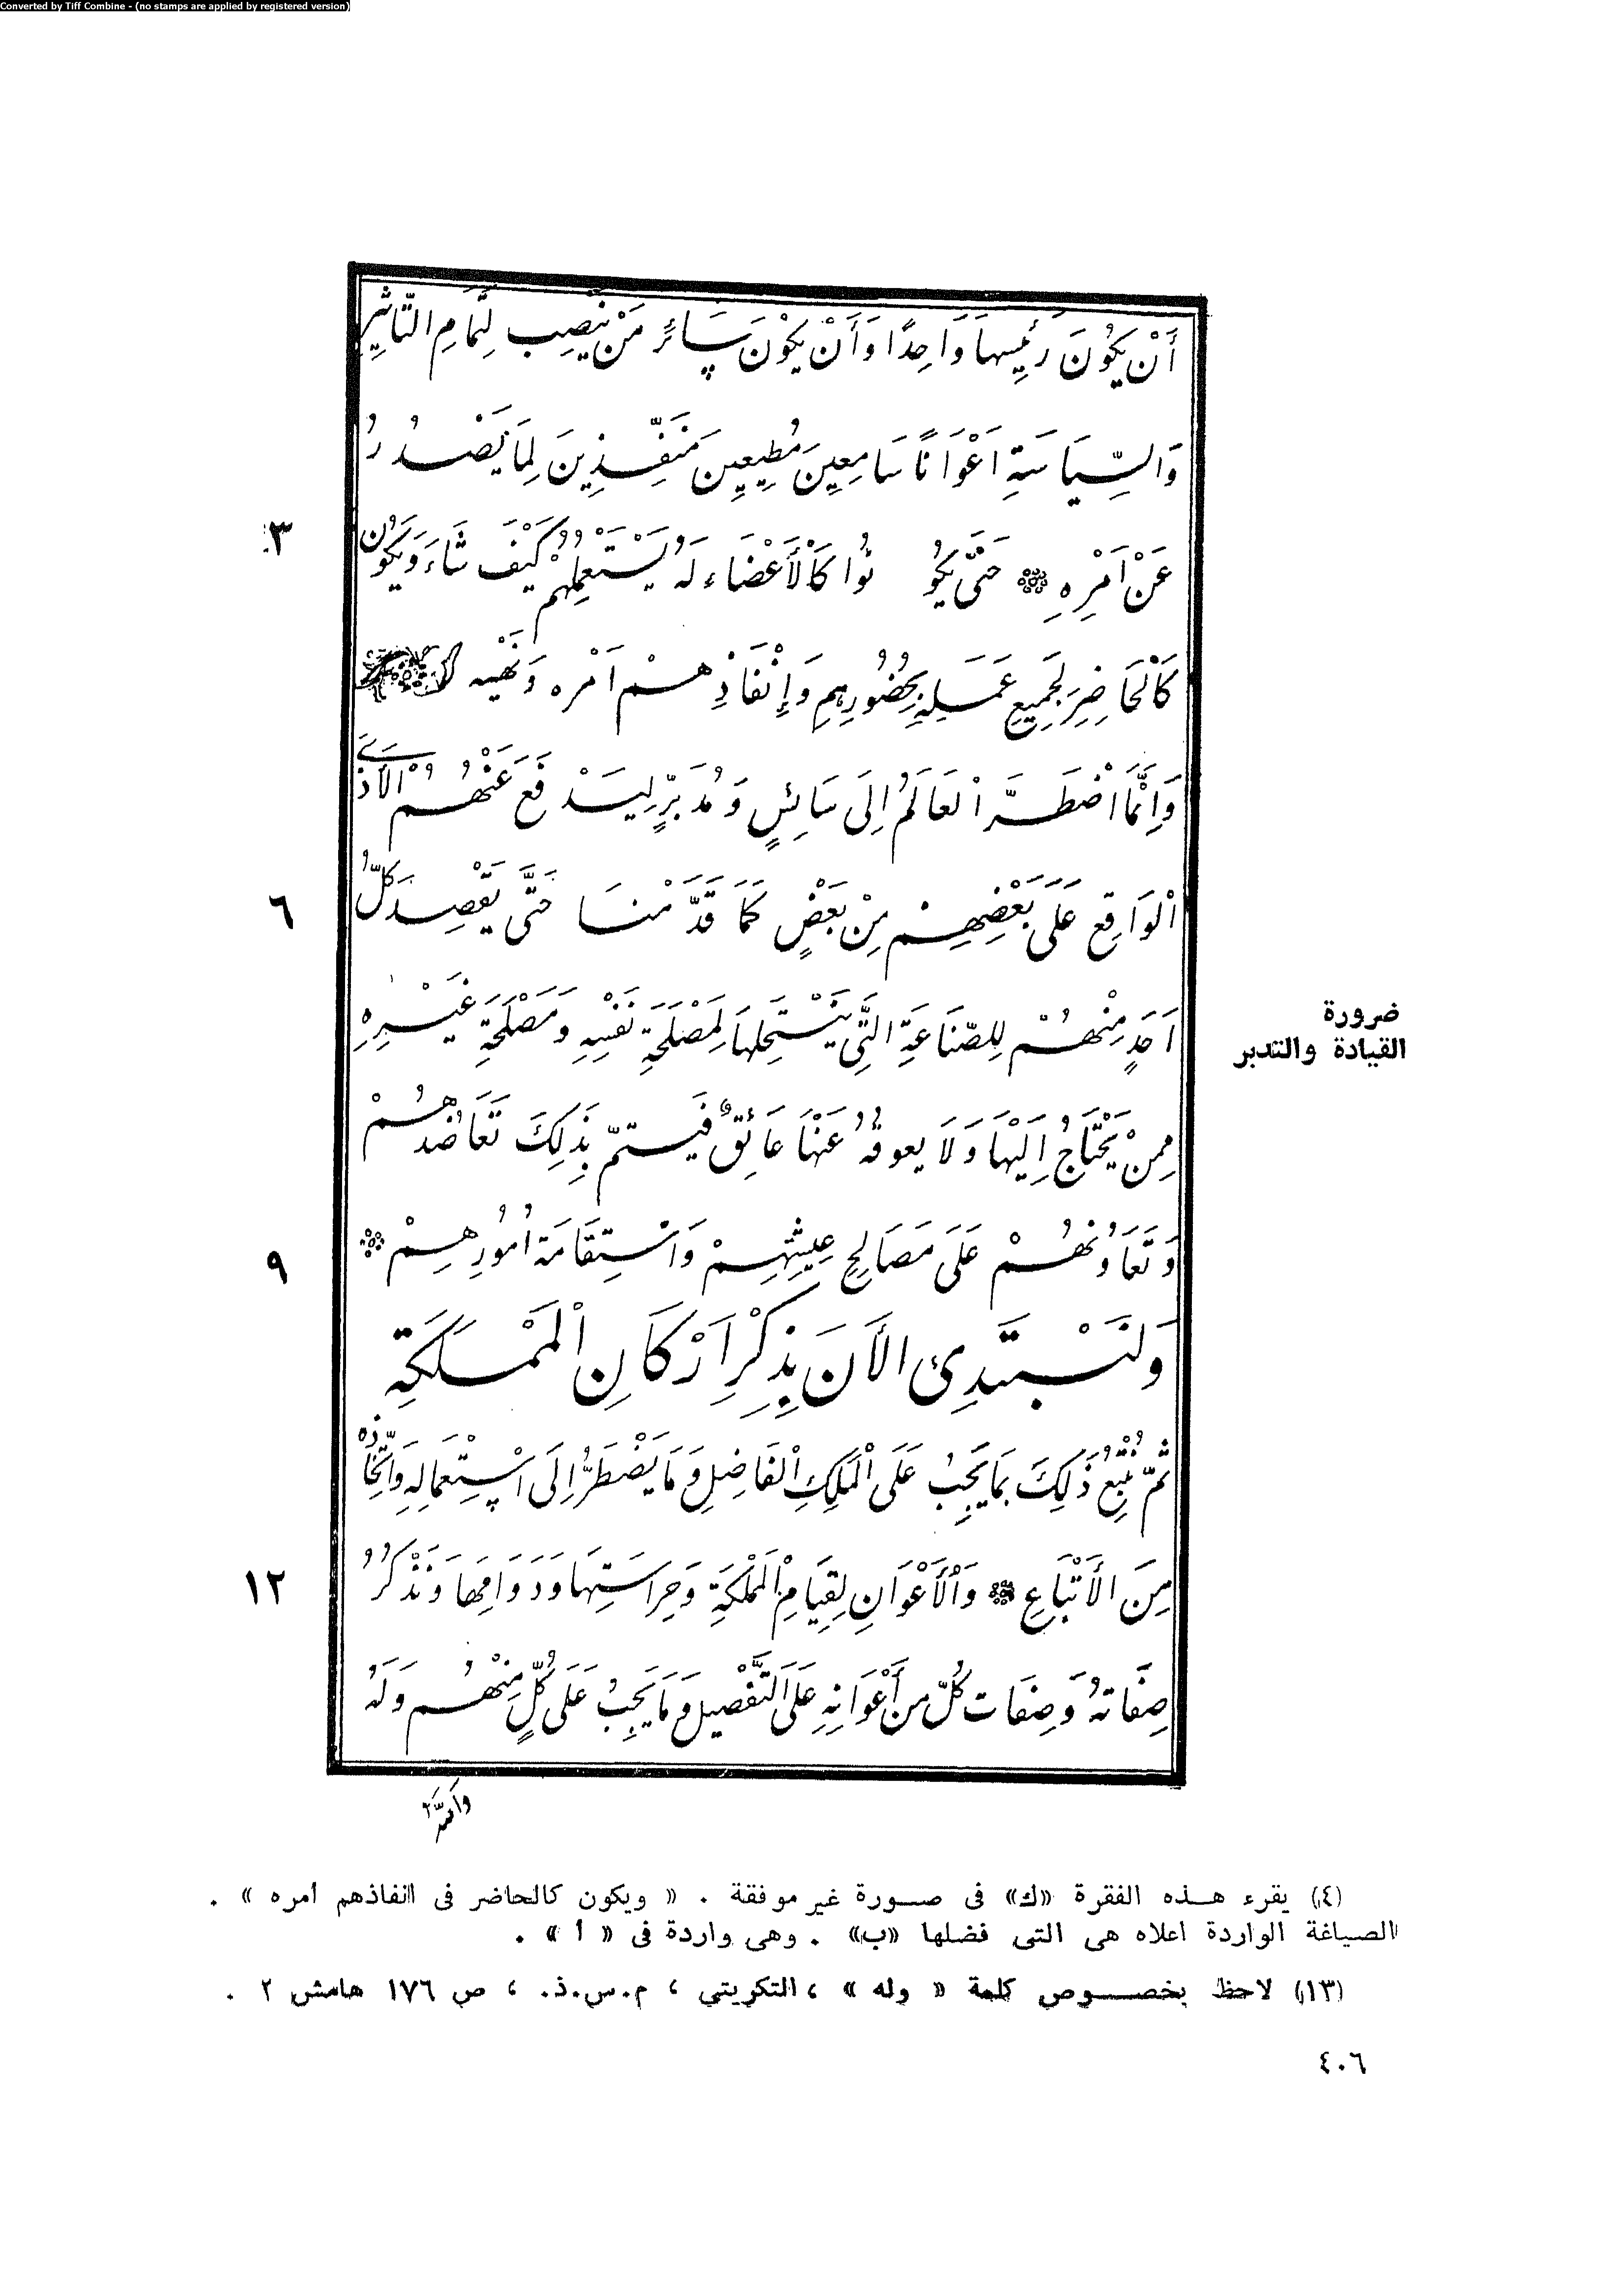 Converted by Tiff Combine - (no stamps are applied by registered version)
أَنْ يَكُونَ رَئِيسُهَا وَاحِدًا وَأَنْ يَكُوْنَ سَائِرُ مَنْ يُنْصِب لِتَمَامِ التَّاثِيرِ
وَالسِّيَاسَةِ اَعْوَانًا سَامِعِيَن مُطِيعِيِن مَنَفِّذِينَ لِمَا يَصْدُرُ
٣
عَنْ اَمْرِهِ حَتَّى يَكُو نُوا كَالْأَعْضَاء لَهُ يَسْتَعْمِلُهُمْ كَيْفَ شَاءَ وَيَكُوُن
كَالْحَاضِرِ لجَمِيعِ عَمَلِهِ بِحُضُورِهِمِ وَإِنْفَاذِهِمْ اَمْره وَنَهْيه
وَاِنَّمَا اضْطَرَّ الْعَالَمُ اِلَى سَائِسٍ وَمُدَبِّرٍ لِيَدْفَعَ عَنْهُمُ الْأَذَى
٦
الْوَاقِع عَلَى بَعْضِهِمْ مِنْ بَعْضٍ كَمَا قَدَّمْنَا حَتَّى يَقْصِدَ كُلُّ
اَحَدٍ مِنْهُمْ لِلصِّنَاعَةِ الَّتِى يَنْتَحِلهَا لِمَصْلَحَةِ نَفْسِهِ وَمَصْلَحَةِ غَيْرِهِ
ضرورة
القيادة والتدبر
مِمنْ يَحْتَاجُ اِلَيْهَا وَلَا يعوقُهُ عَنْهَا عَائِقٌ فَيتمّ بِذَلِكَ تَعَاضُدهُمْ
٩
وَتَعَاوُنهُمْ عَلَى مَصَالِحِ عِيشِتِهِمْ وَاسْتِقَامَة اُمُورِهِمْ
وَلنَبْتَدِئ الأَنَ بِذِكْرِ اَرْكَانِ الْمَمْلَكَةِ
ثمّ نُتْبِعُ ذَلِكَ بمَا يَجِبُ عَلَى الْمَلِكِ الْفَاضِلِ وَمَا يَضْطَرُّ اِلَى اسْتِعْمَالِهِ وَاتِّخَاذه
١٢
مِنَ الأَتْبَاعِ وَالْأَعْوَانِ لِقِيَامِ الْمَمْلَكَةِ وَحِرَاسَتِهَا وَدَوَامِهَا وَنَذْكُرُ
صِفَاتهُ وَصِفَات كُلّ من أَعْوَانِهِ عَلَى التَّفْصِيلِ وَمَا يَجِبُ عَلَى كُلٍّ مِنْهُم وَلَهُ
(٤) يقرء هذه الفقرة «ك» فى صورة غير موفقة . « ويكون كالحاضر فى انفاذهم أمره » .
الصياغة الواردة اعلاه هى التى فضلها «ب» . وهى واردة فى « أ » .
(١٣) لاحظ بخصوص كلمة « وله » ، التكريتي ، م.س.ذ. ، ص ١٧٦ هامش ٢ .
٤٠٦